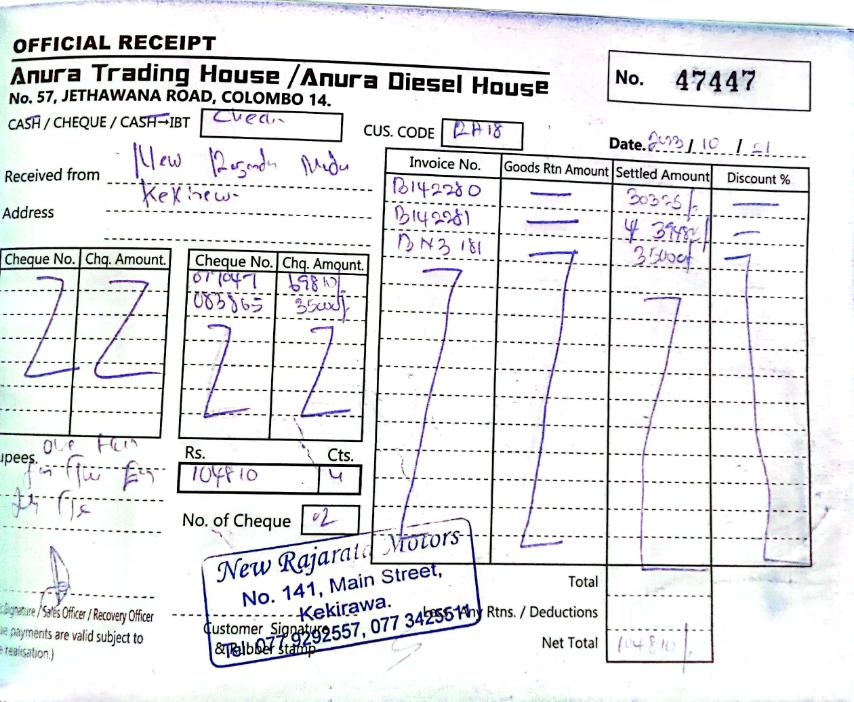 OFFICIAL RECEIPT
Anura Trading House /Anura Diesel House
No. 57, JETHAWANA ROAD, COLOMBO 14.
No. 47447
CASH / CHEQUE / CASH IBT
CUS. CODE
Date. / 10 / 21
Received from New
Address
Invoice No. Goods Rtn Amount Settled Amount Discount %
B142280 — 30325/- —
B142281 — 39485/- —
BN3 181 35000/-
Cheque No. Chq. Amount. Cheque No. Chq. Amount.
69810/-
083865 35000/-
upees.
Rs. Cts.
104810
No. of Cheque 02
New Rajarata Motors
No. 141, Main Street,
Kekirawa.
Tel: 077 9292557, 077 3425511
Customer Signature
& Rubber stamp
Signature / Sales Officer / Recovery Officer
payments are valid subject to
realisation.)
Total
Less: Any Rtns. / Deductions
Net Total 104810/-